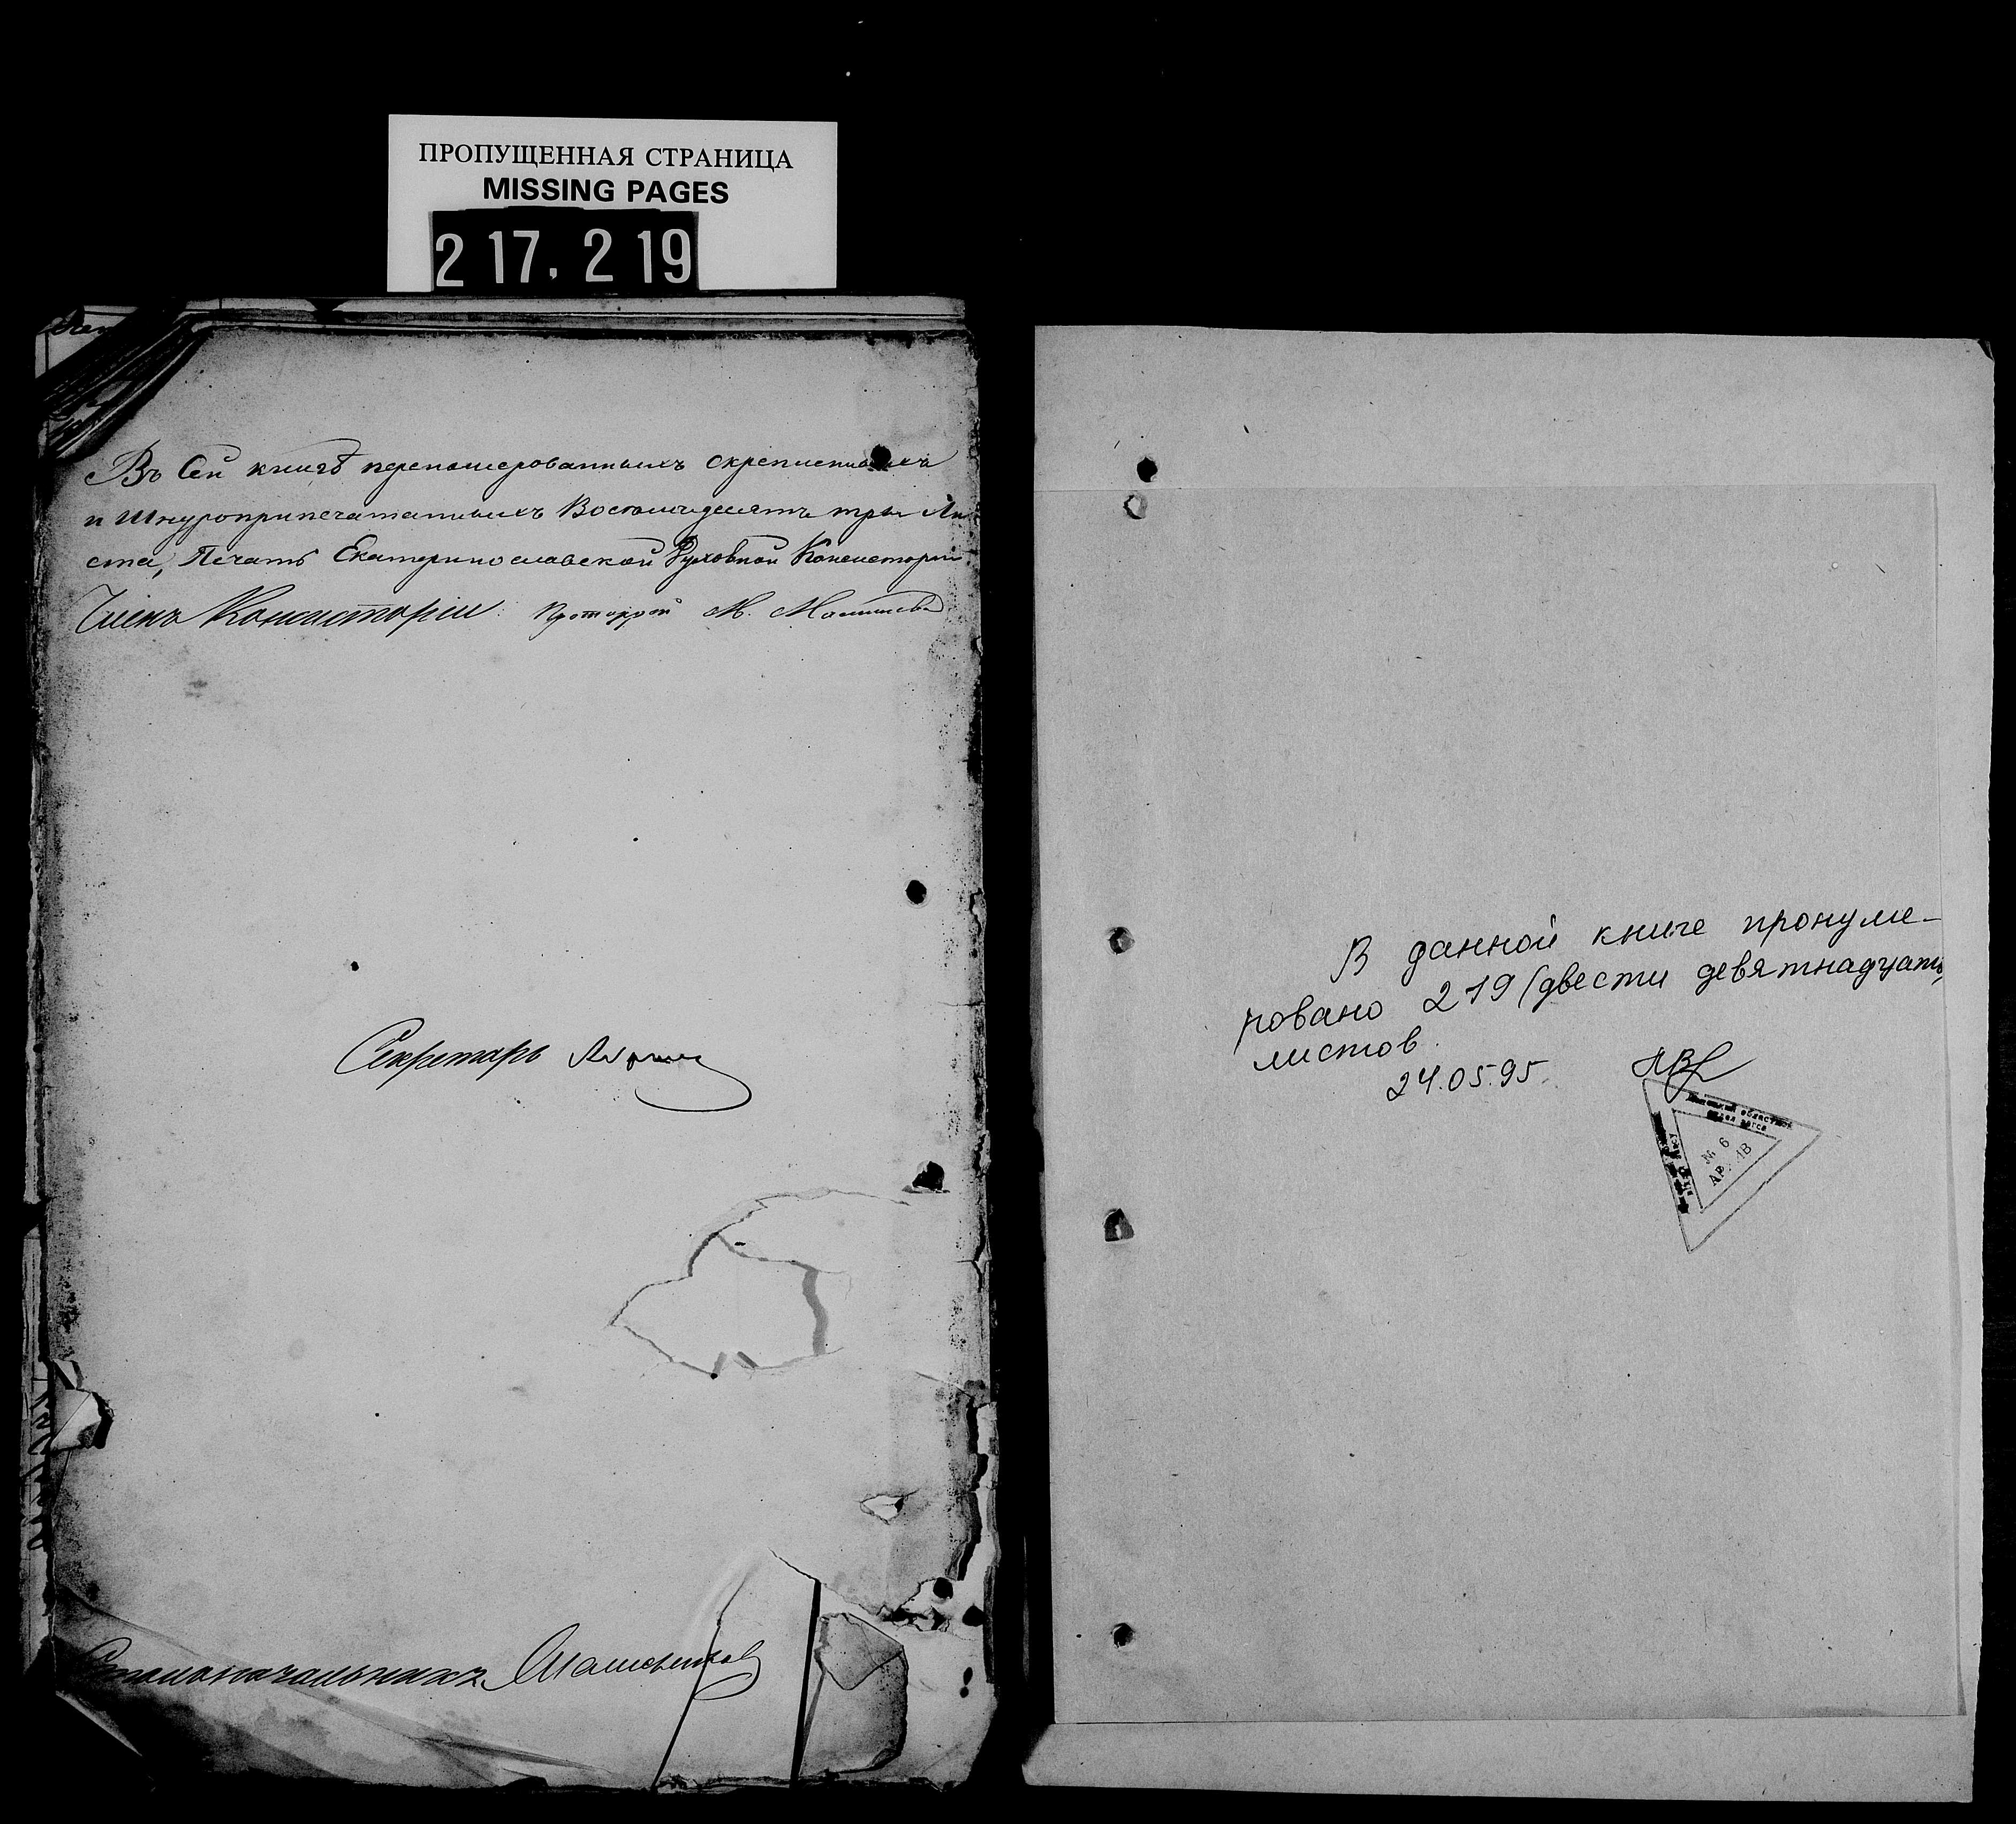 ПРОПУЩЕННАЯ СТРАНИЦА
MISSING PAGES
217. 219
Въ Сей книгѣ перенамерованныхъ скрепленныхъ
и Шнуроприпечатанныхъ Восемьдесятъ три Ли
ста, Печать Екатеринославской Духовной Консисторіи.
Членъ Консисторіи Протоіерей М.
Секретарь
Столоначальникъ
В данной книге пронуме-
ровано 219 (двести девятнадцать)
листов.
24.05.95.
областной
отдел загса
№ 6